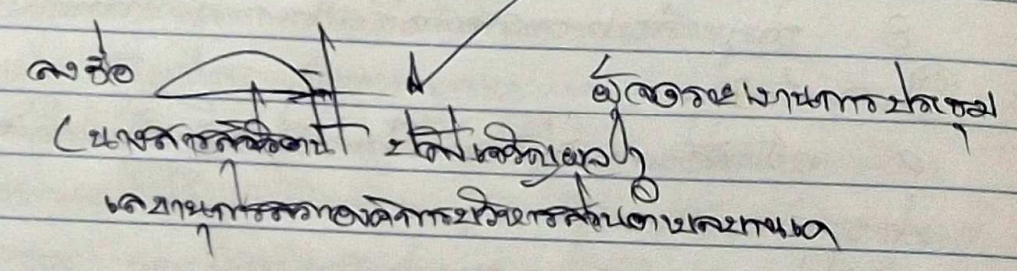 ลงชื่อ ผู้จดรายงานการประชุม
(นางสาว
เลขานุการสภาองค์การบริหารส่วนตำบล